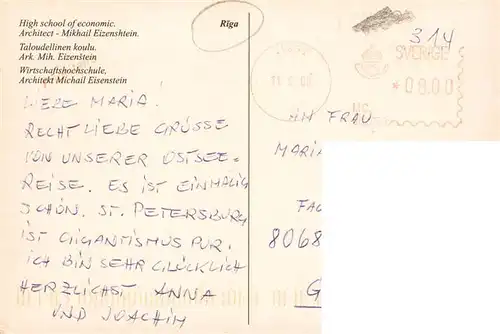 High school of economic.
Architect - Mikhail Eizenshtein.
Taloudellinen koulu.
Ark. Mih. Eizenštein
Wirtschaftshochschule,
Architekt Michail Eisenstein
Rīga
314
SVERIGE
*0900
LIEBE MARIA!
RECHT LIEBE GRÜSSE
VON UNSERER OSTSEE=
REISE. ES IST EINMALIG
SCHÖN. ST. PETERSBURG
IST GIGANTISMUS PUR.
ICH BIN SEHR GLÜCKLICH
HERZLICHST ANNA
UND JOACHIM
AN FRAU
MARIA
8068